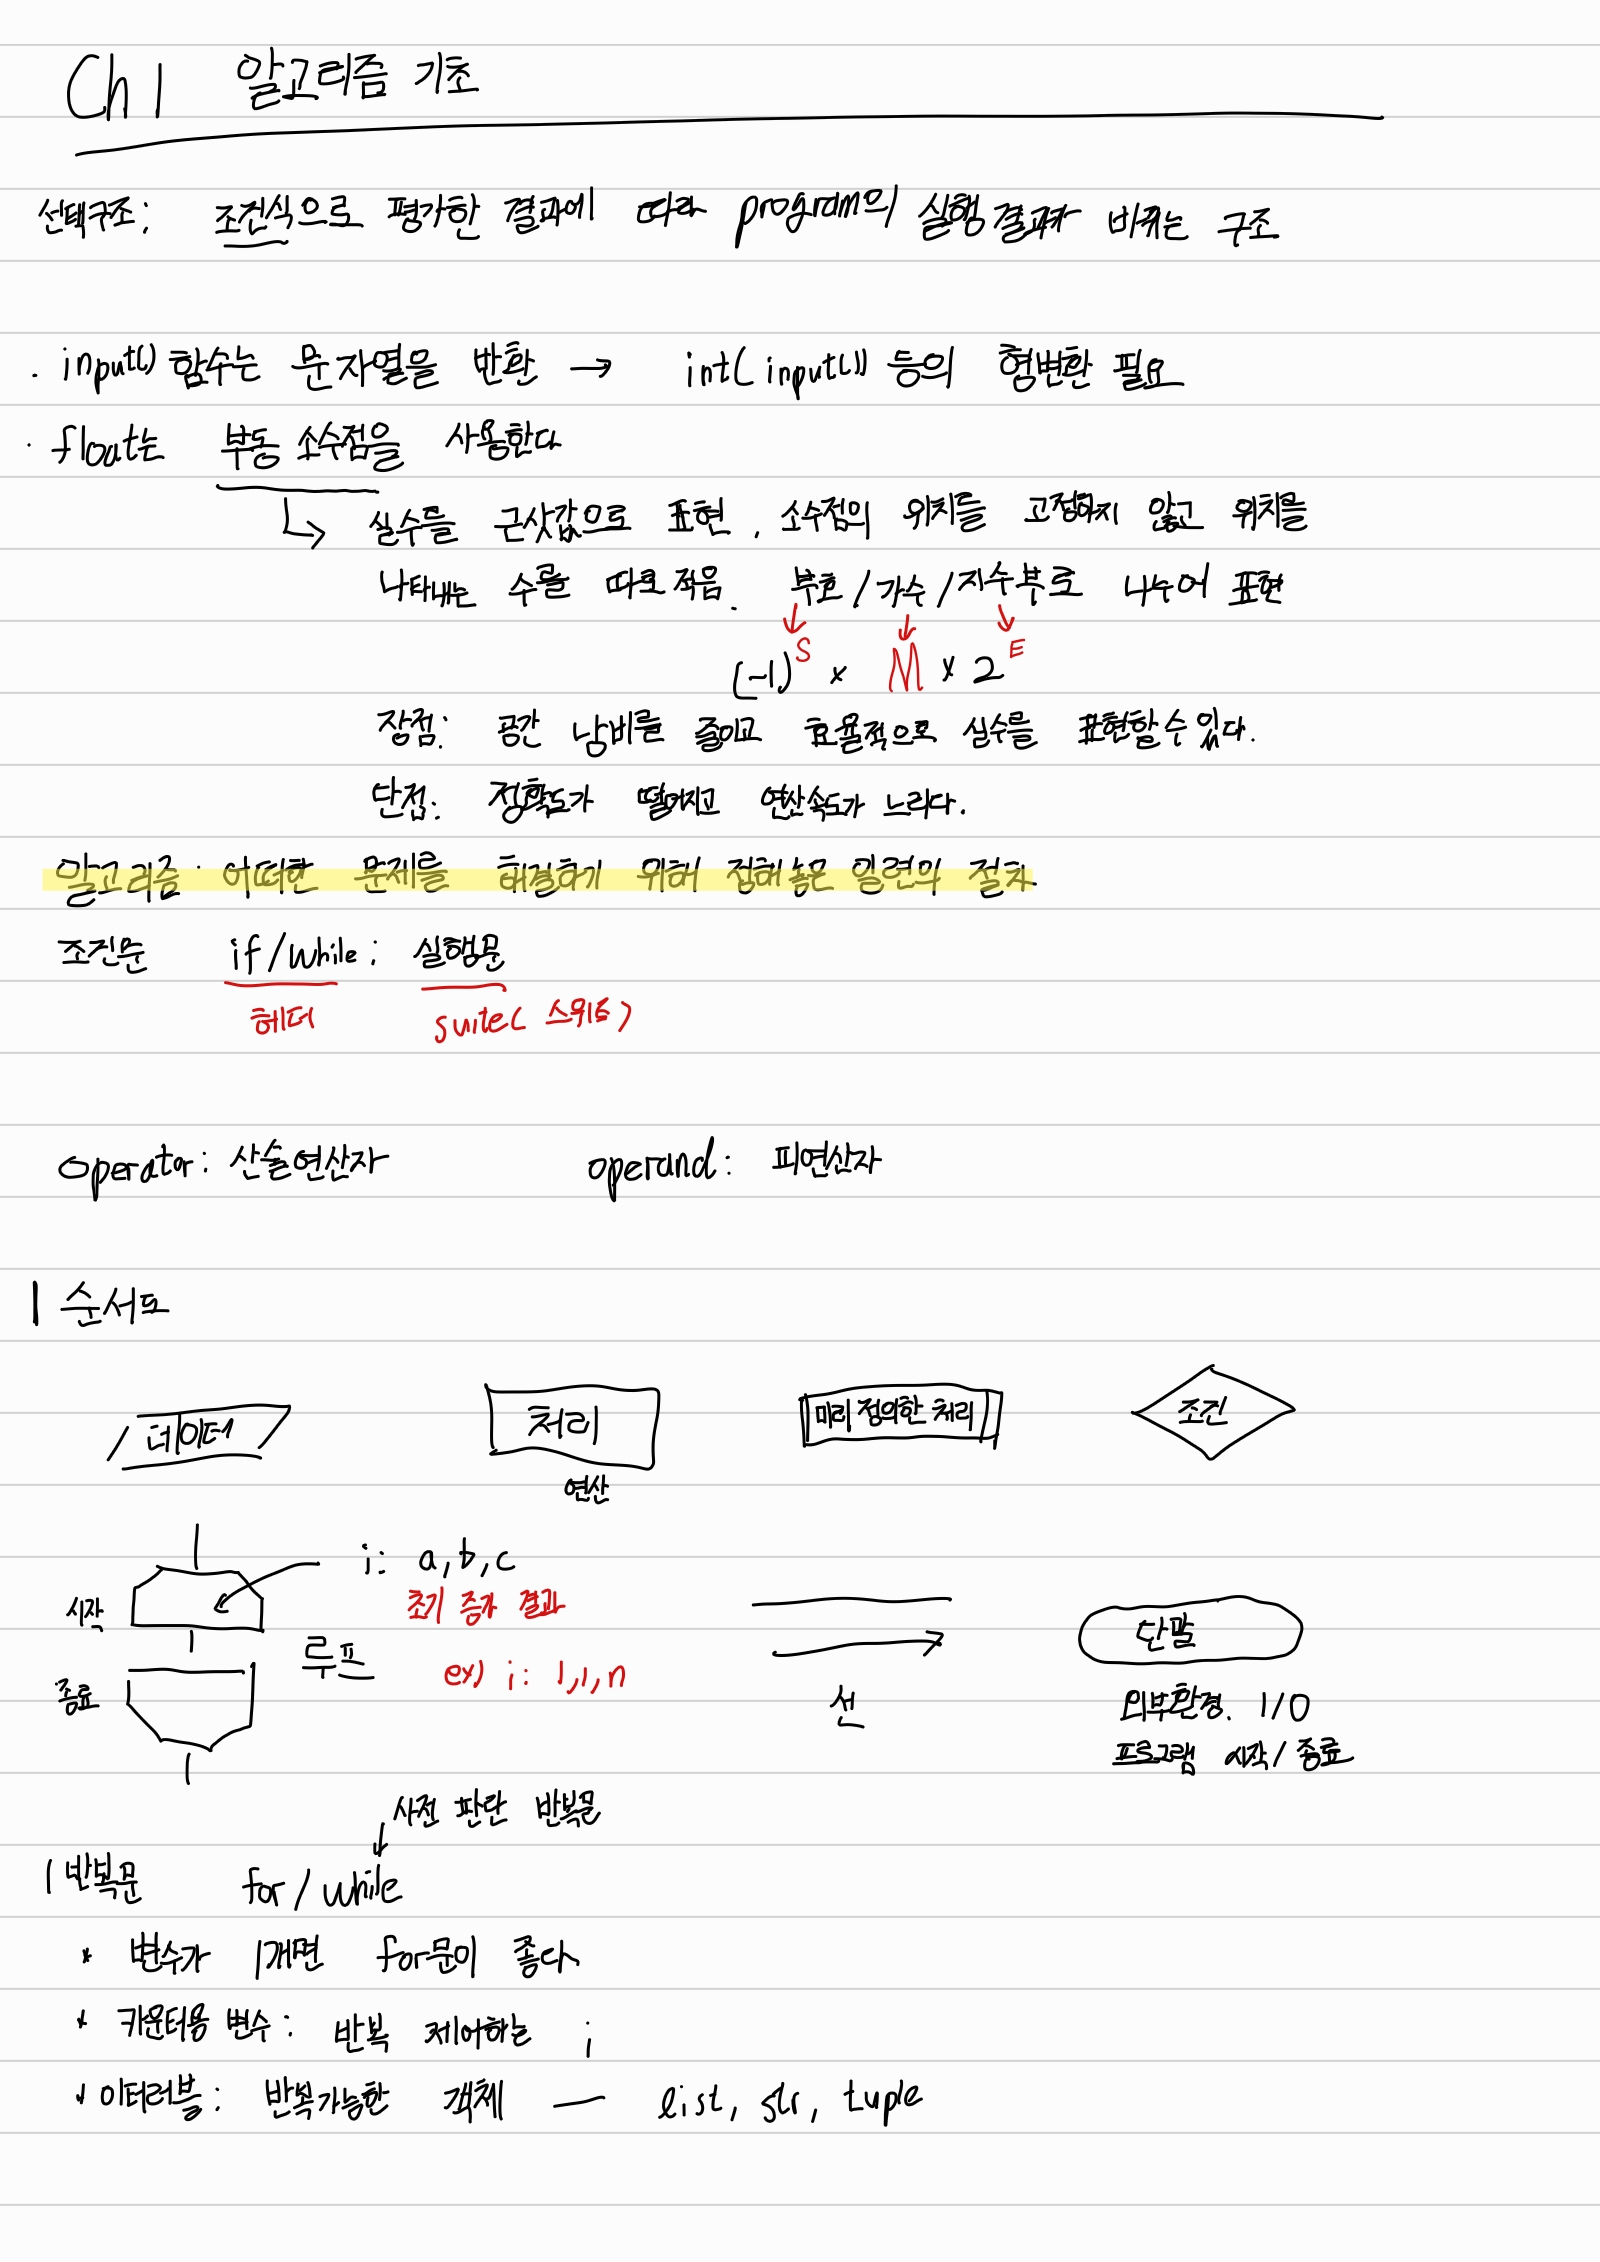 Ch 1 알고리즘 기초
선택구조: 조건식으로 평가한 결과에 따라 program의 실행 결과가 바뀌는 구조
· input() 함수는 문자열을 반환 → int(input()) 등의 형변환 필요
· float는 부동 소수점을 사용한다
↳ 실수를 근삿값으로 표현. 소수점의 위치를 고정하지 않고 위치를
나타내는 수를 따로 적음. 부호/가수/지수부로 나누어 표현
(-1)^S × M × 2^E
장점: 공간 낭비를 줄이고 효율적으로 실수를 표현할 수 있다.
단점: 정확도가 떨어지고 연산속도가 느리다.
알고리즘: 어떠한 문제를 해결하기 위해 정해놓은 일련의 절차
조건문 if/while: 실행문
헤더 suite(스위트)
operator: 산술연산자 operand: 피연산자
| 순서도
데이터 처리 미리 정의한 처리 조건
연산
i: a, b, c
시작 초기 증가 결과 단말
루프 ex) i: 1, 1, n
종료 선 외부환경. I/O
프로그램 시작/종료
사전 판단 반복문
| 반복문 for/while
* 변수가 1개면 for문이 좋다
* 카운터용 변수: 반복 제어하는 i
* 이터러블: 반복가능한 객체 — list, str, tuple